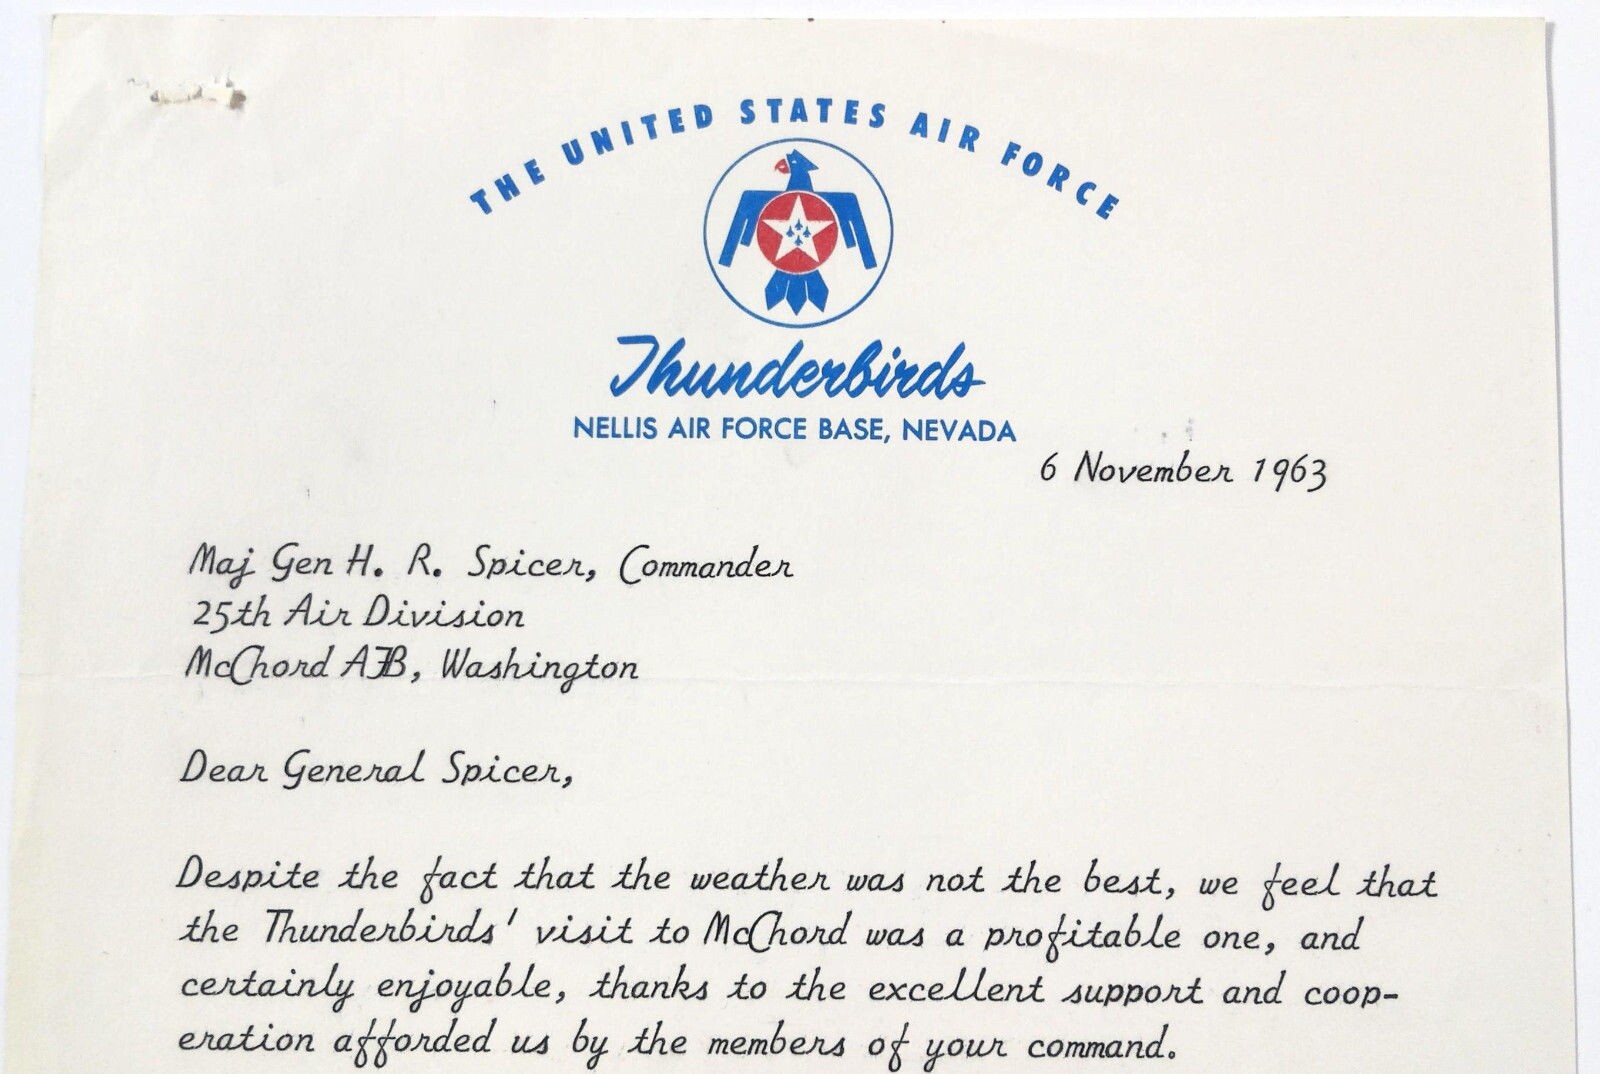 THE UNITED STATES AIR FORCE
Thunderbirds
NELLIS AIR FORCE BASE, NEVADA
6 November 1963
Maj Gen H. R. Spicer, Commander
25th Air Division
McChord AFB, Washington
Dear General Spicer,
Despite the fact that the weather was not the best, we feel that
the Thunderbirds' visit to McChord was a profitable one, and
certainly enjoyable, thanks to the excellent support and coop-
eration afforded us by the members of your command.